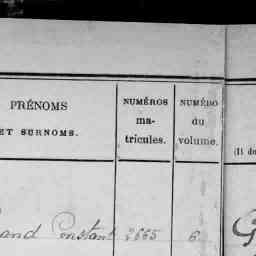 PRÉNOMS
ET SURNOMS.
NUMÉROS
ma-
tricules.
NUMÉRO
du
volume.
(Il
and Constant 2665 6